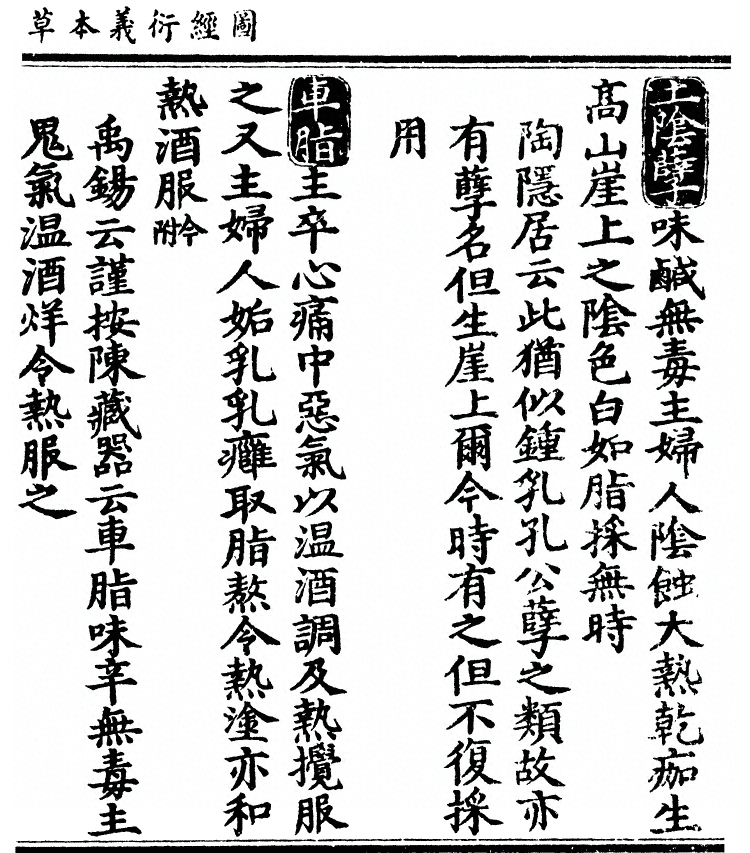 圖經衍義本草
土陰孽味鹹無毒主婦人陰蝕大熱乾痂生
高山崖上之陰色白如脂採無時
陶隱居云此猶似鍾乳孔公孽之類故亦
有孽名但生崖上爾今時有之但不復採
用
車脂主卒心痛中惡氣以温酒調及熱攪服
之又主婦人妬乳乳癰取脂熬令熱塗亦和
熱酒服今附
禹錫云謹按陳藏器云車脂味辛無毒主
鬼氣温酒烊令熱服之